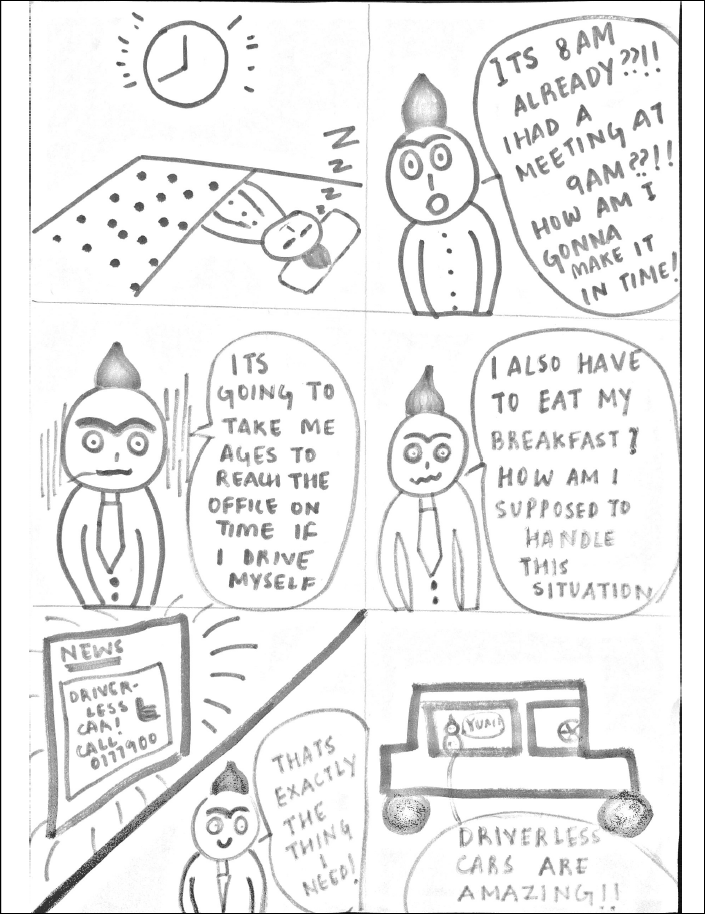 Z
Z
Z
Z
ITS 8AM
ALREADY??!!
I HAD A
MEETING AT
9AM??!!
HOW AM I
GONNA
MAKE IT
IN TIME!
ITS
GOING TO
TAKE ME
AGES TO
REACH THE
OFFICE ON
TIME IF
I DRIVE
MYSELF
I ALSO HAVE
TO EAT MY
BREAKFAST?
HOW AM I
SUPPOSED TO
HANDLE
THIS
SITUATION
NEWS
DRIVER-
LESS
CAR!
CALL
0177900
THATS
EXACTLY
THE
THING
I
NEED!
YUM!
DRIVERLESS
CARS ARE
AMAZING!!